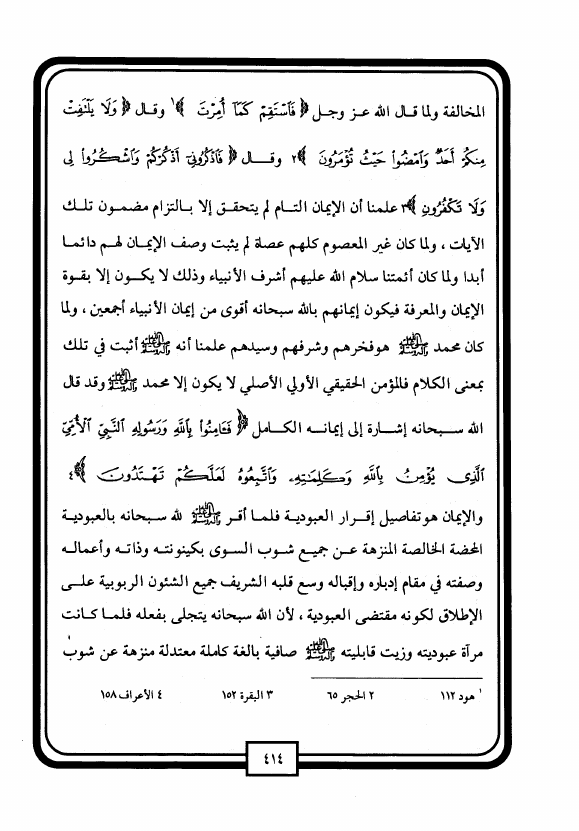 المخالفة ولما قال الله عز وجل ﴿ فَٱسْتَقِمْ كَمَآ أُمِرْتَ ﴾١ وقال ﴿ وَلَا يَلْتَفِتْ
مِنكُمْ أَحَدٌ وَٱمْضُوا۟ حَيْثُ تُؤْمَرُونَ ﴾٢ وقال ﴿ فَٱذْكُرُونِىٓ أَذْكُرْكُمْ وَٱشْكُرُوا۟ لِى
وَلَا تَكْفُرُونِ ﴾٣ علمنا أن الإيمان التام لم يتحقق إلا بالتزام مضمون تلك
الآيات ، ولما كان غير المعصوم كلهم عصاة لم يثبت وصف الإيمان لهم دائما
أبدا ولما كان أئمتنا سلام الله عليهم أشرف الأنبياء وذلك لا يكون إلا بقوة
الإيمان والمعرفة فيكون إيمانهم بالله سبحانه أقوى من إيمان الأنبياء أجمعين ، ولما
كان محمد ﷺ هو فخرهم وشرفهم وسيدهم علمنا أنه ﷺ أثبت في تلك
بمعنى الكلام فالمؤمن الحقيقي الأولي الأصلي لا يكون إلا محمد ﷺ وقد قال
الله سبحانه إشارة إلى إيمانه الكامل ﴿ فَـَٔامِنُوا۟ بِٱللَّهِ وَرَسُولِهِ ٱلنَّبِىِّ ٱلْأُمِّىِّ
ٱلَّذِى يُؤْمِنُ بِٱللَّهِ وَكَلِمَـٰتِهِۦ وَٱتَّبِعُوهُ لَعَلَّكُمْ تَهْتَدُونَ ﴾٤
والإيمان هو تفاصيل إقرار العبودية فلما أقر ﷺ لله سبحانه بالعبودية
المحضة الخالصة المنزهة عن جميع شوب السوى بكينونته وذاته وأعماله
وصفته في مقام إدباره وإقباله وسع قلبه الشريف جميع الشئون الربوبية على
الإطلاق لكونه مقتضى العبودية ، لأن الله سبحانه يتجلى بفعله فلما كانت
مرآة عبوديته وزيت قابليته ﷺ صافية بالغة كاملة معتدلة منزهة عن شوب
١ هود ١١٢ ٢ الحجر ٦٥ ٣ البقرة ١٥٢ ٤ الأعراف ١٥٨
٤١٤